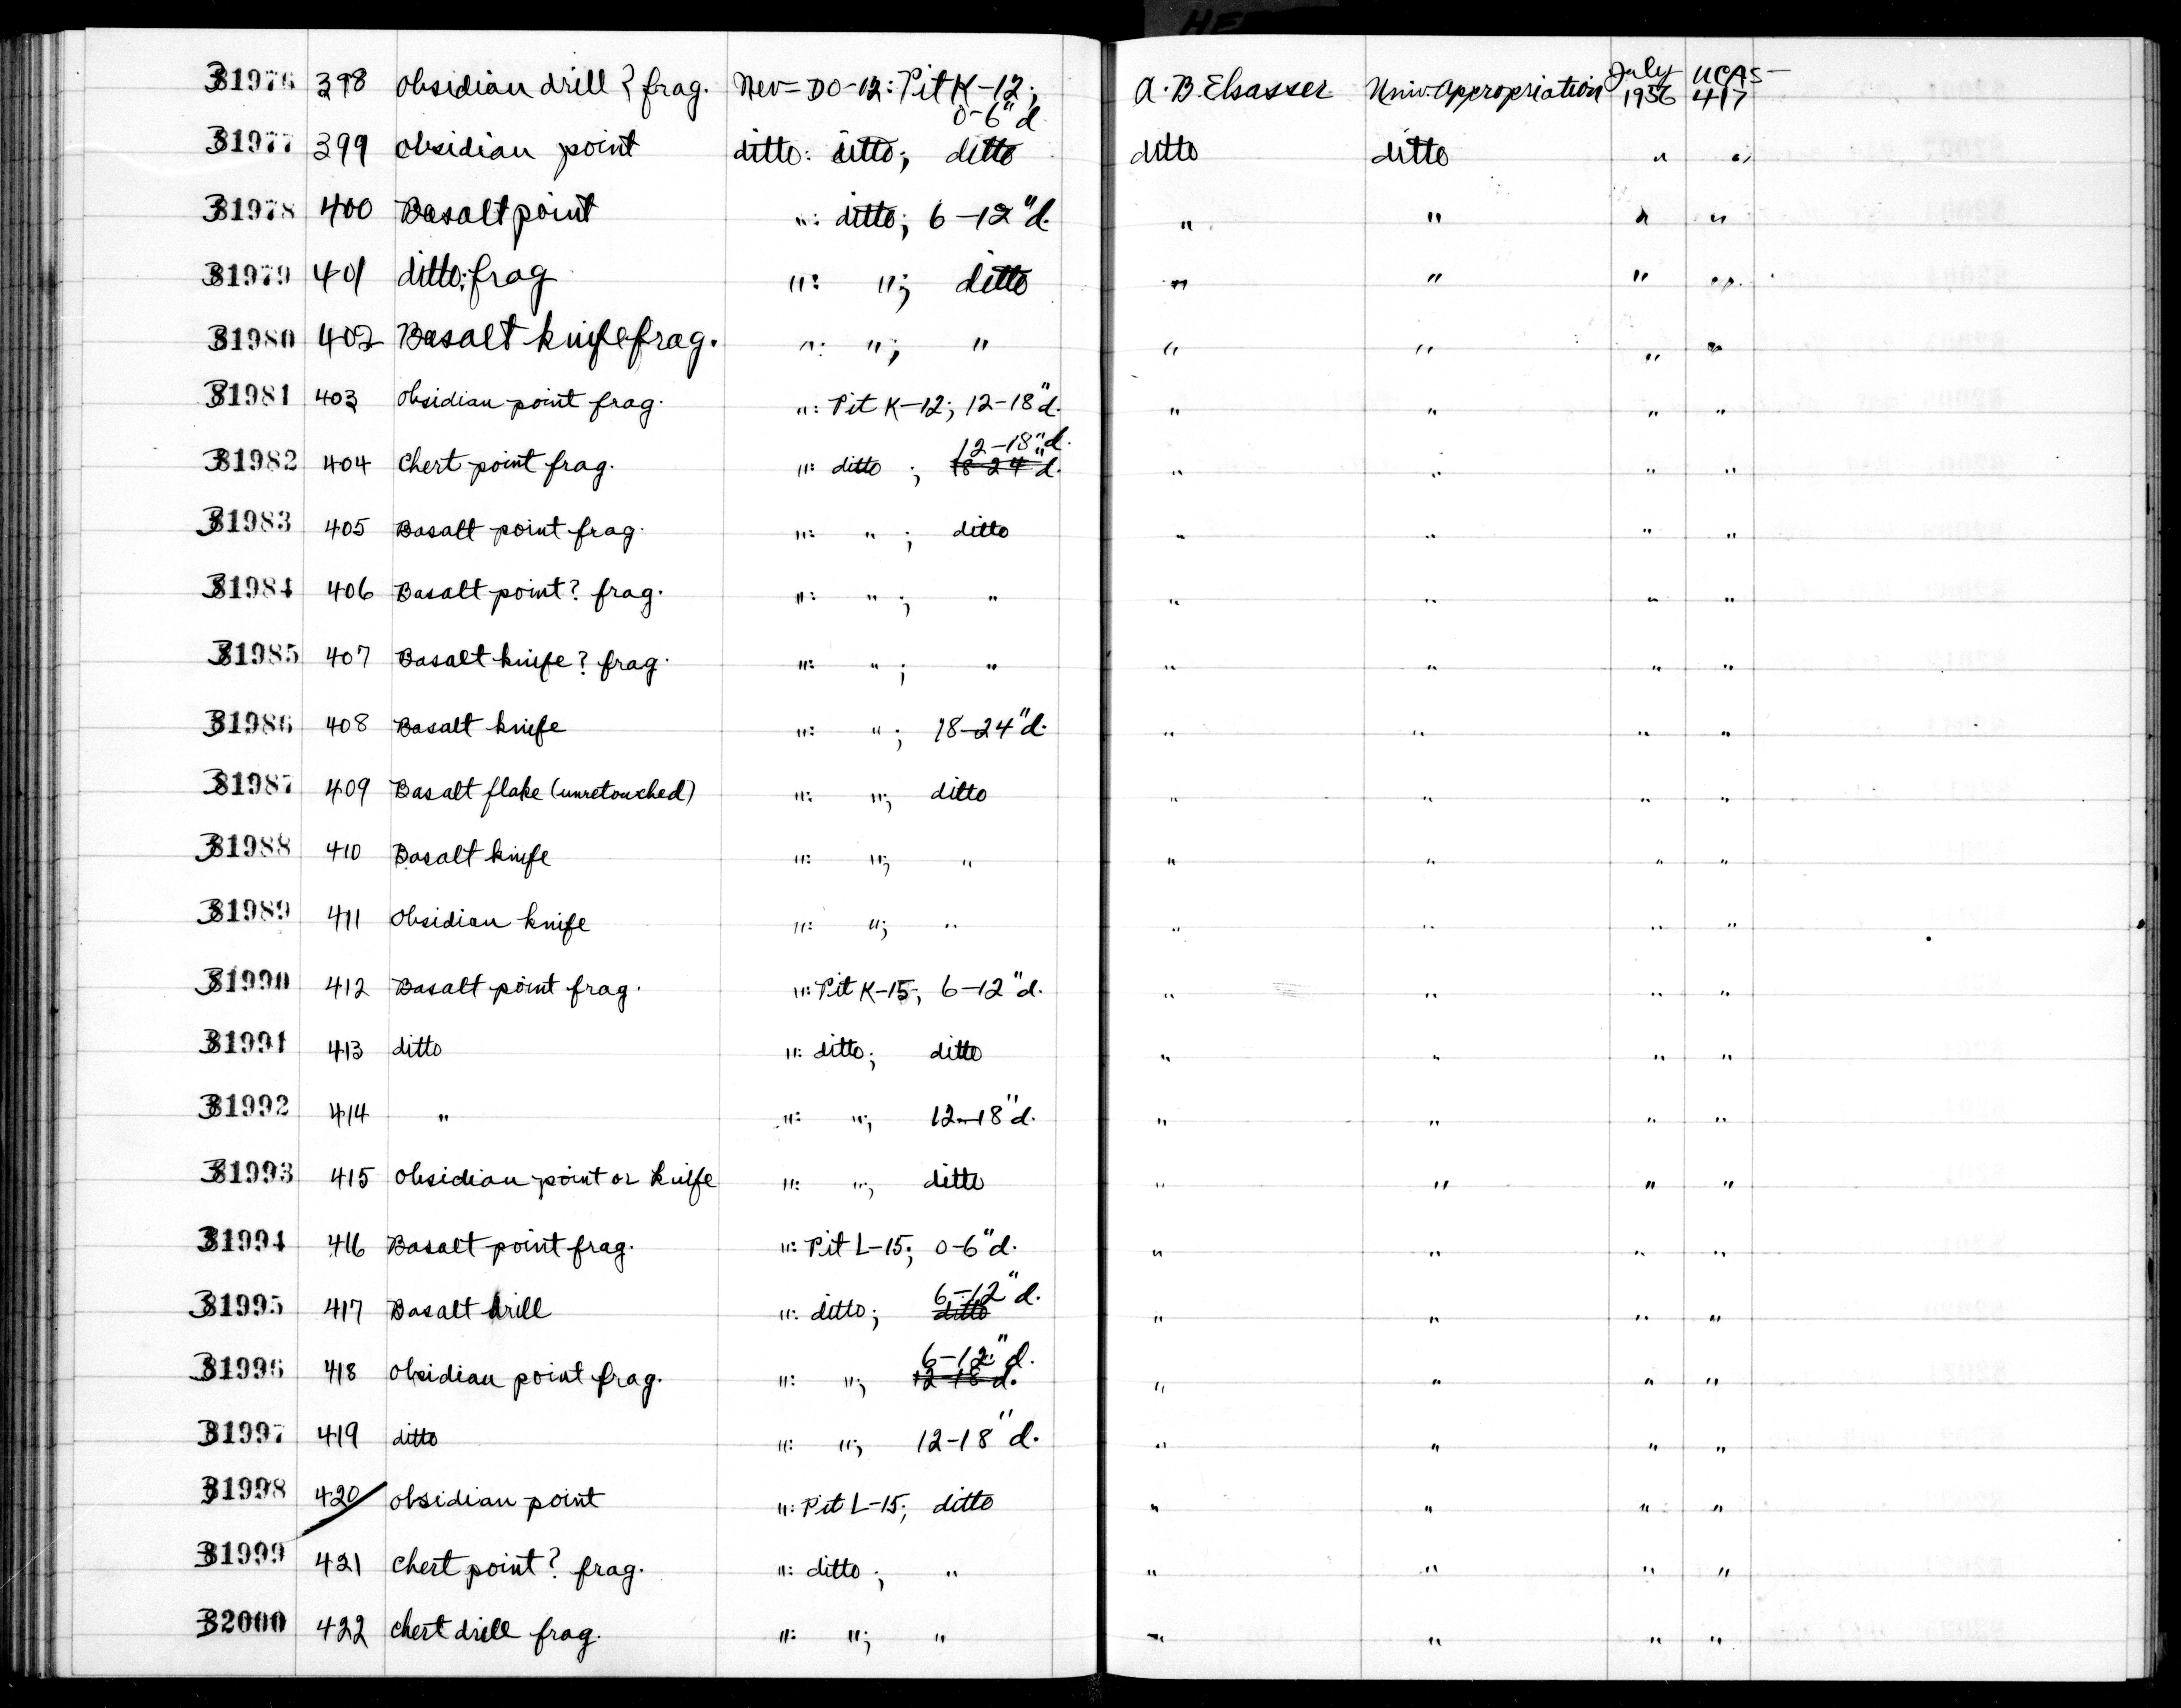 HE
31976 398 Obsidian drill? frag. Nev-DO-12: Pit K-12; 0-6"d A. B. Elsasser Univ. Appropriation July 1956 UCAS-417
31977 399 Obsidian point ditto: ditto; ditto ditto ditto " "
31978 400 Basalt point ": ditto; 6-12"d. " " " "
31979 401 ditto; frag ": "; ditto " " " "
31980 402 Basalt knife frag. ": "; " " " " "
31981 403 Obsidian point frag. ": Pit K-12; 12-18"d. " " " "
31982 404 Chert point frag. ": ditto ; 12-18"d. 18-24"d. " " " "
31983 405 Basalt point frag. ": " ; ditto " " " "
31984 406 Basalt point? frag. ": " ; " " " " "
31985 407 Basalt knife? frag. ": " ; " " " " "
31986 408 Basalt knife ": " ; 18-24"d. " " " "
31987 409 Basalt flake (unretouched) ": "; ditto " " " "
31988 410 Basalt knife ": "; " " " " "
31989 411 Obsidian knife ": "; " " " " "
31990 412 Basalt point frag. ": Pit K-15; 6-12"d. " " " "
31991 413 ditto ": ditto; ditto " " " "
31992 414 " ": "; 12-18"d. " " " "
31993 415 Obsidian point or knife ": "; ditto " " " "
31994 416 Basalt point frag. ": Pit L-15; 0-6"d. " " " "
31995 417 Basalt drill ": ditto; 6-12"d. ditto " " " "
31996 418 Obsidian point frag. ": "; 6-12"d. 12-18"d. " " " "
31997 419 ditto ": "; 12-18"d. " " " "
31998 420 Obsidian point ": Pit L-15; ditto " " " "
31999 421 Chert point? frag. ": ditto ; " " " " "
32000 422 Chert drill frag. ": "; " " " " "